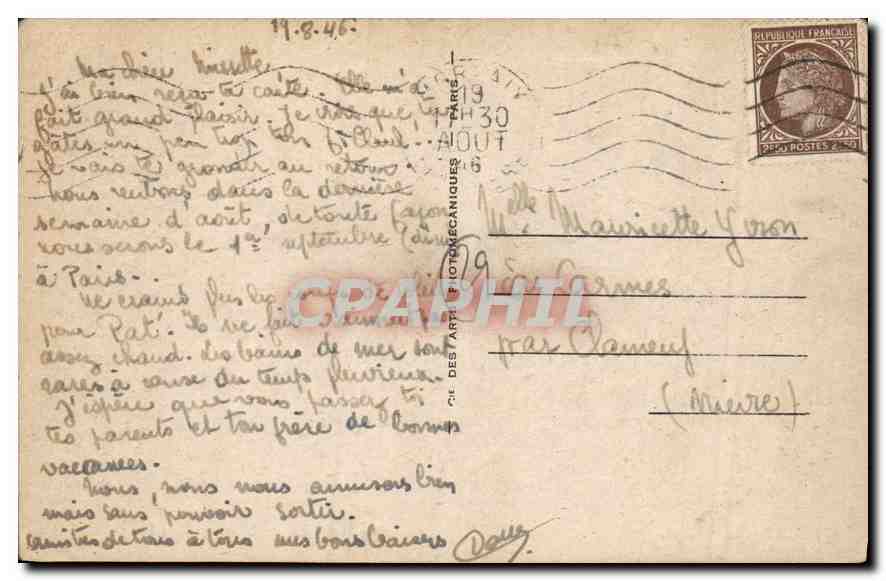 19.8.46.
Ma chère
J'ai bien reçu ta carte. Elle m'a
fait grand plaisir. Je crois que tu
gâtes un peu trop
Je vais te gronder au retour.
Nous rentrons dans la dernière
semaine d'août, de toute façon
nous serons le 1er septembre
à Paris.
Je crains
pour Pat. Il ne fait vraiment pas
assez chaud. Les bains de mer sont
rares à cause du temps pluvieux.
J'espère que vous passez toi
tes parents et ton frère de bonnes
vacances.
Nous, nous nous amusons bien
mais sans pouvoir sortir.
de tous à tous mes bons baisers
CIE DES ARTS PHOTOMÉCANIQUES PARIS
19
1 H30
AOUT
46
REPUBLIQUE FRANÇAISE
2F50 POSTES 2F50
Melle Mauricette Yvon
19
CPAPHIL
par
(Nièvre)